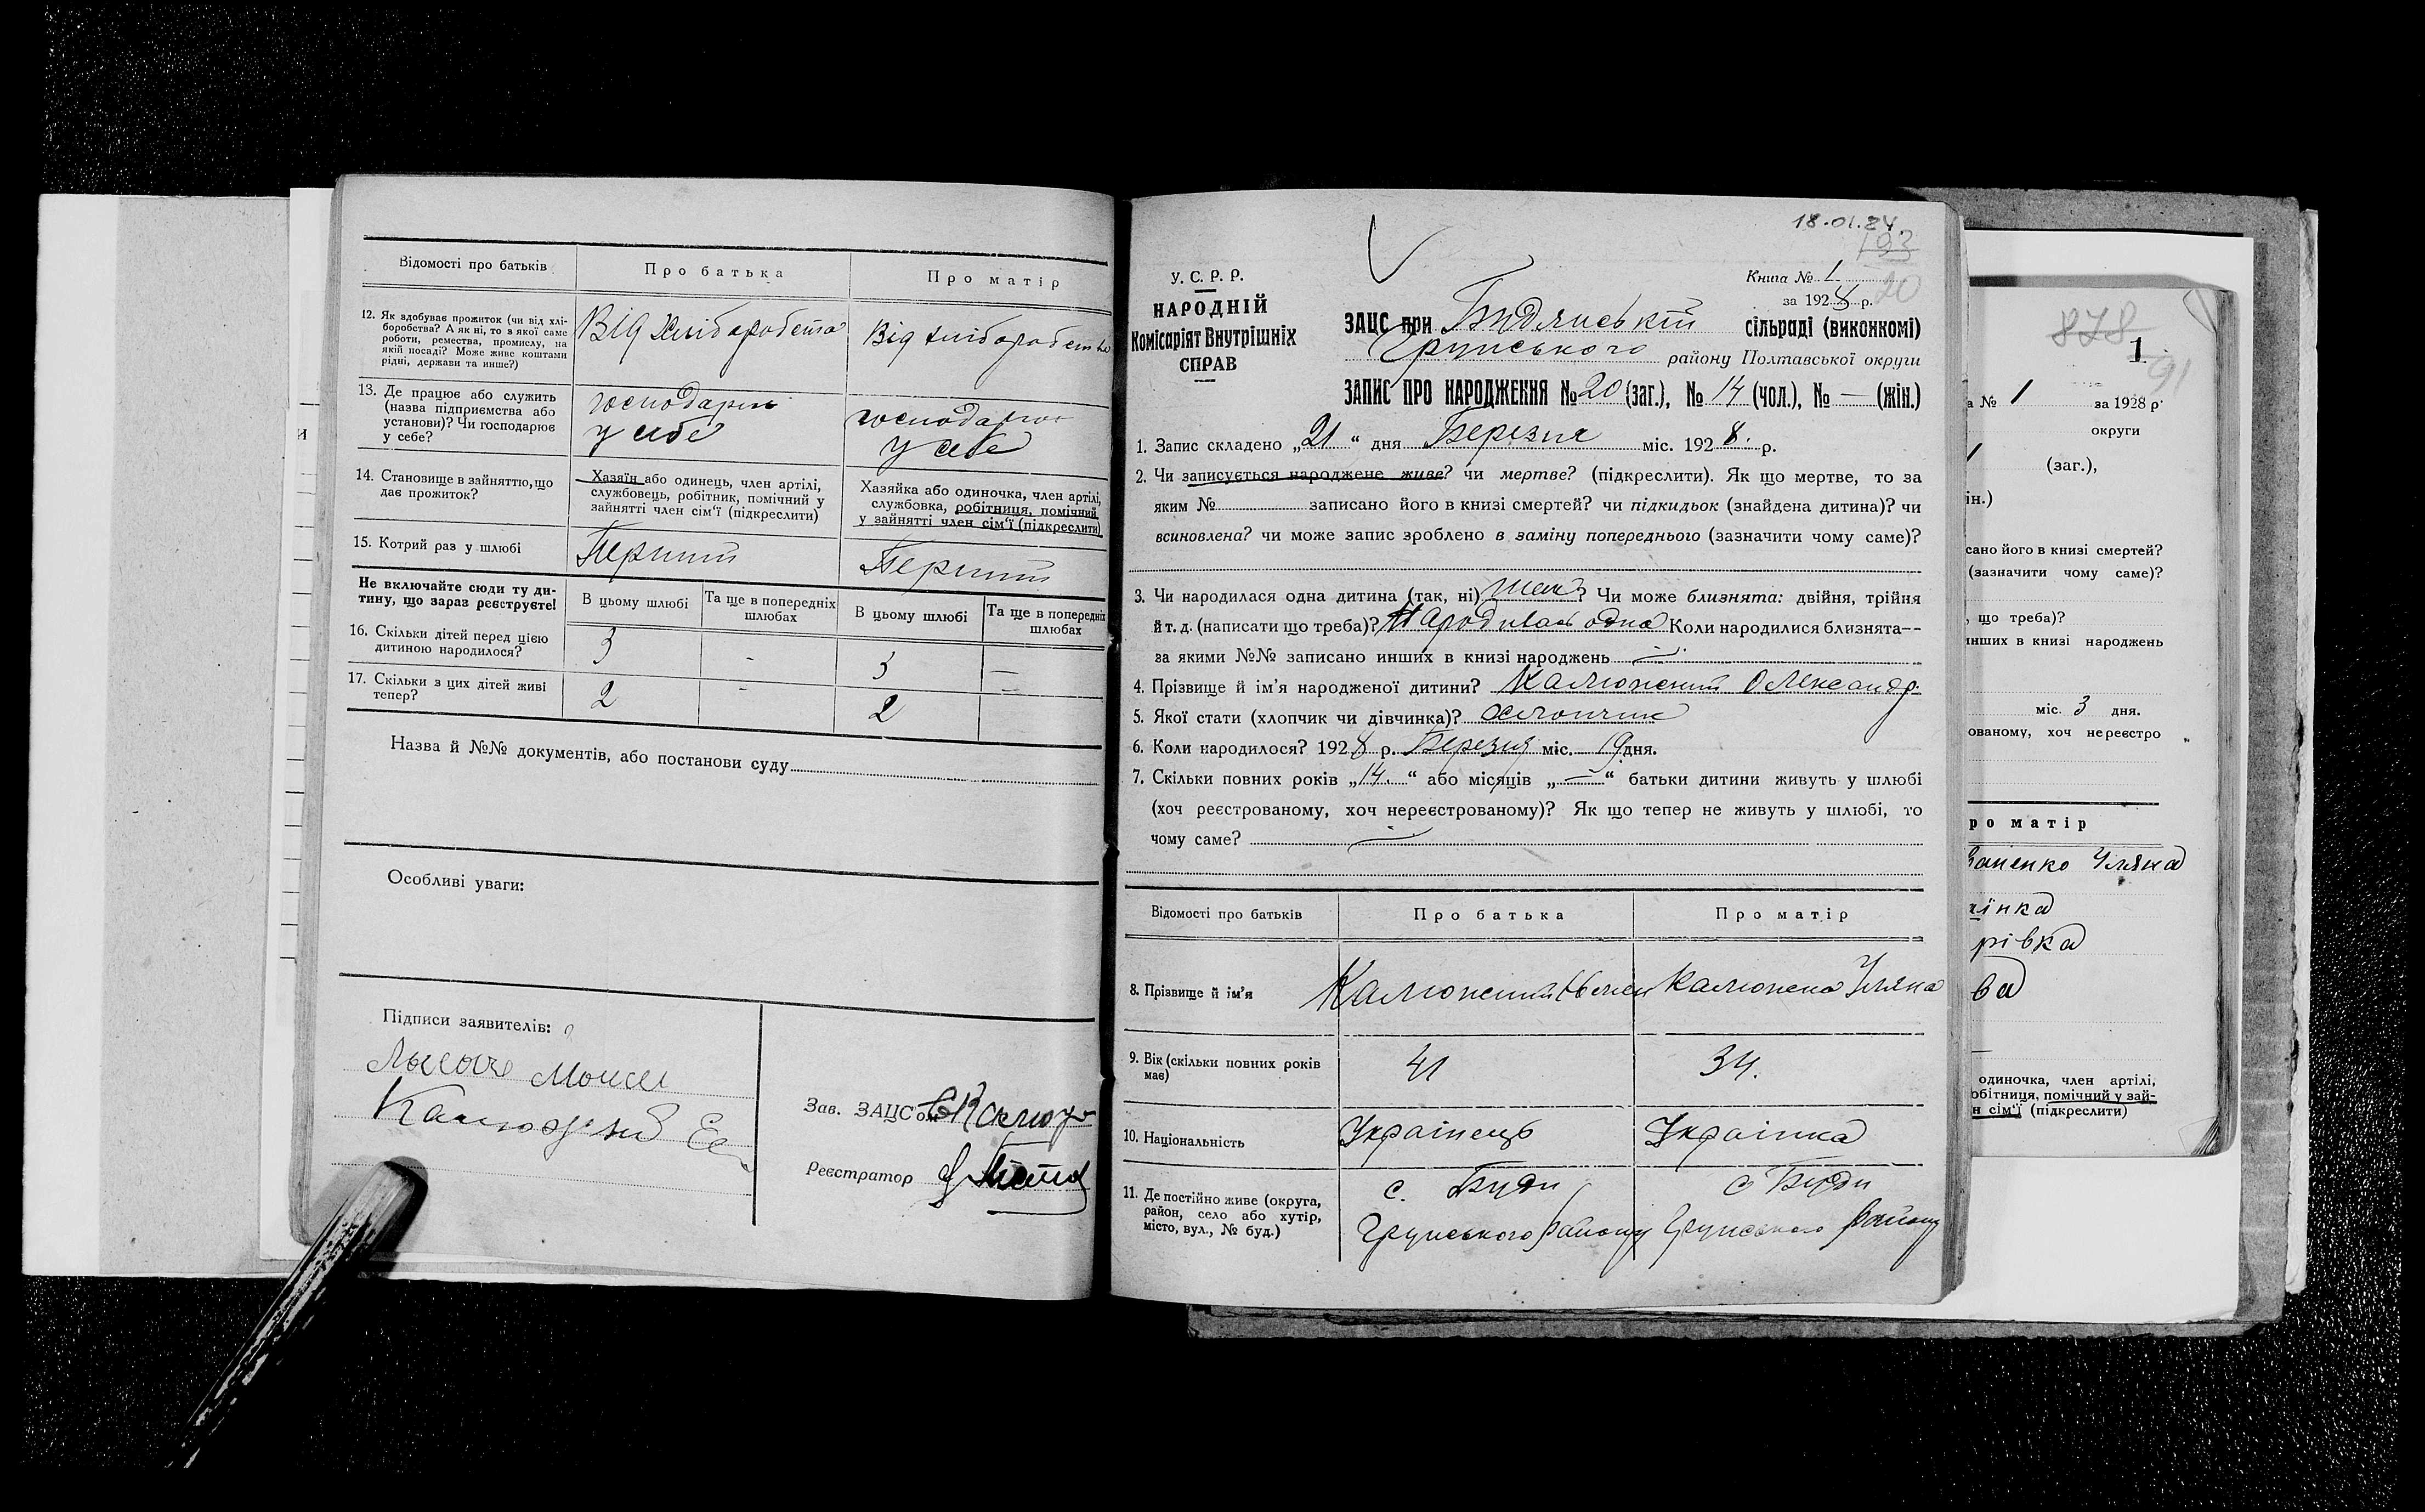 Відомості про батьків
Про батька
Про матір
12. Як здобуває прожиток (чи від хлі-
боробства? А як ні, то з якої саме
роботи, ремества, промислу, на
якій посаді? Може живе коштами
рідні, держави та инше?)
Від хліборобства
Від хліборобства
13. Де працює або служить
(назва підприємства або
установи)? Чи господарює
у себе?
господарює
у себе
господарює
у себе
14. Становище в зайняттю, що
дає прожиток?
Хазяїн або одинець, член артілі,
службовець, робітник, помічний у
зайнятті член сім'ї (підкреслити)
Хазяйка або одиночка, член артілі,
службовка, робітниця, помічний
у зайнятті член сім'ї (підкреслити)
15. Котрий раз у шлюбі
Перший
Перший
Не включайте сюди ту ди-
тину, що зараз реєструєте!
В цьому шлюбі
Та ще в попередніх
шлюбах
В цьому шлюбі
Та ще в попередніх
шлюбах
16. Скільки дітей перед цією
дитиною народилося?
3
-
3
—
17. Скільки з цих дітей живі
тепер?
2
-
2
—
Назва й №№ документів, або постанови суду
Особливі уваги:
Підписи заявителів:
Мойсей
Калюжний
Зав. ЗАЦС'ом
Реєстратор
18.01.84
193
20
У. С. Р. Р.
НАРОДНІЙ
Комісаріят Внутрішніх
СПРАВ
Книга № 1
за 1928 р.
ЗАЦС при Будянській сільраді (виконкомі)
Грунського району Полтавської округи
ЗАПИС ПРО НАРОДЖЕННЯ № 20 (заг.), № 14 (чол.), № — (жін.)
1. Запис складено „21“ дня Березня міс. 1928. р.
2. Чи записується народжене живе? чи мертве? (підкреслити). Як що мертве, то за
яким № записано його в книзі смертей? чи підкидьок (знайдена дитина)? чи
всиновлена? чи може запис зроблено в заміну попереднього (зазначити чому саме)?
3. Чи народилася одна дитина (так, ні) так? Чи може близнята: двійня, трійня
й т. д. (написати що треба)? Народилась одна Коли народилися близнята—
за якими №№ записано инших в книзі народжень —
4. Прізвище й ім'я народженої дитини? Калюжний Олександр.
5. Якої стати (хлопчик чи дівчинка)? Хлопчик
6. Коли народилося? 1928 р. Березня міс. 19 дня.
7. Скільки повних років „14.“ або місяців „—“ батьки дитини живуть у шлюбі
(хоч реєстрованому, хоч нереєстрованому)? Як що тепер не живуть у шлюбі, то
чому саме? —
Відомості про батьків
Про батька
Про матір
8. Прізвище й ім'я
Калюжний
Калюжна Уляна
9. Вік (скільки повних років
має)
41
34.
10. Національність
Українець
Українка
11. Де постійно живе (округа,
район, село або хутір,
місто, вул., № буд.)
с. Буди
Грунського району
с Буди
Грунського району
878
1
91
№ 1 за 1928 р.
округи
(заг.),
ін.)
сано його в книзі смертей?
(зазначити чому саме)?
, що треба)?
инших в книзі народжень
міс. 3 дня.
ованому, хоч нереєстро
ро матір
Уляна
їнка
рівка
ва
одиночка, член артілі,
обітниця, помічний у зай-
н сім'ї (підкреслити)